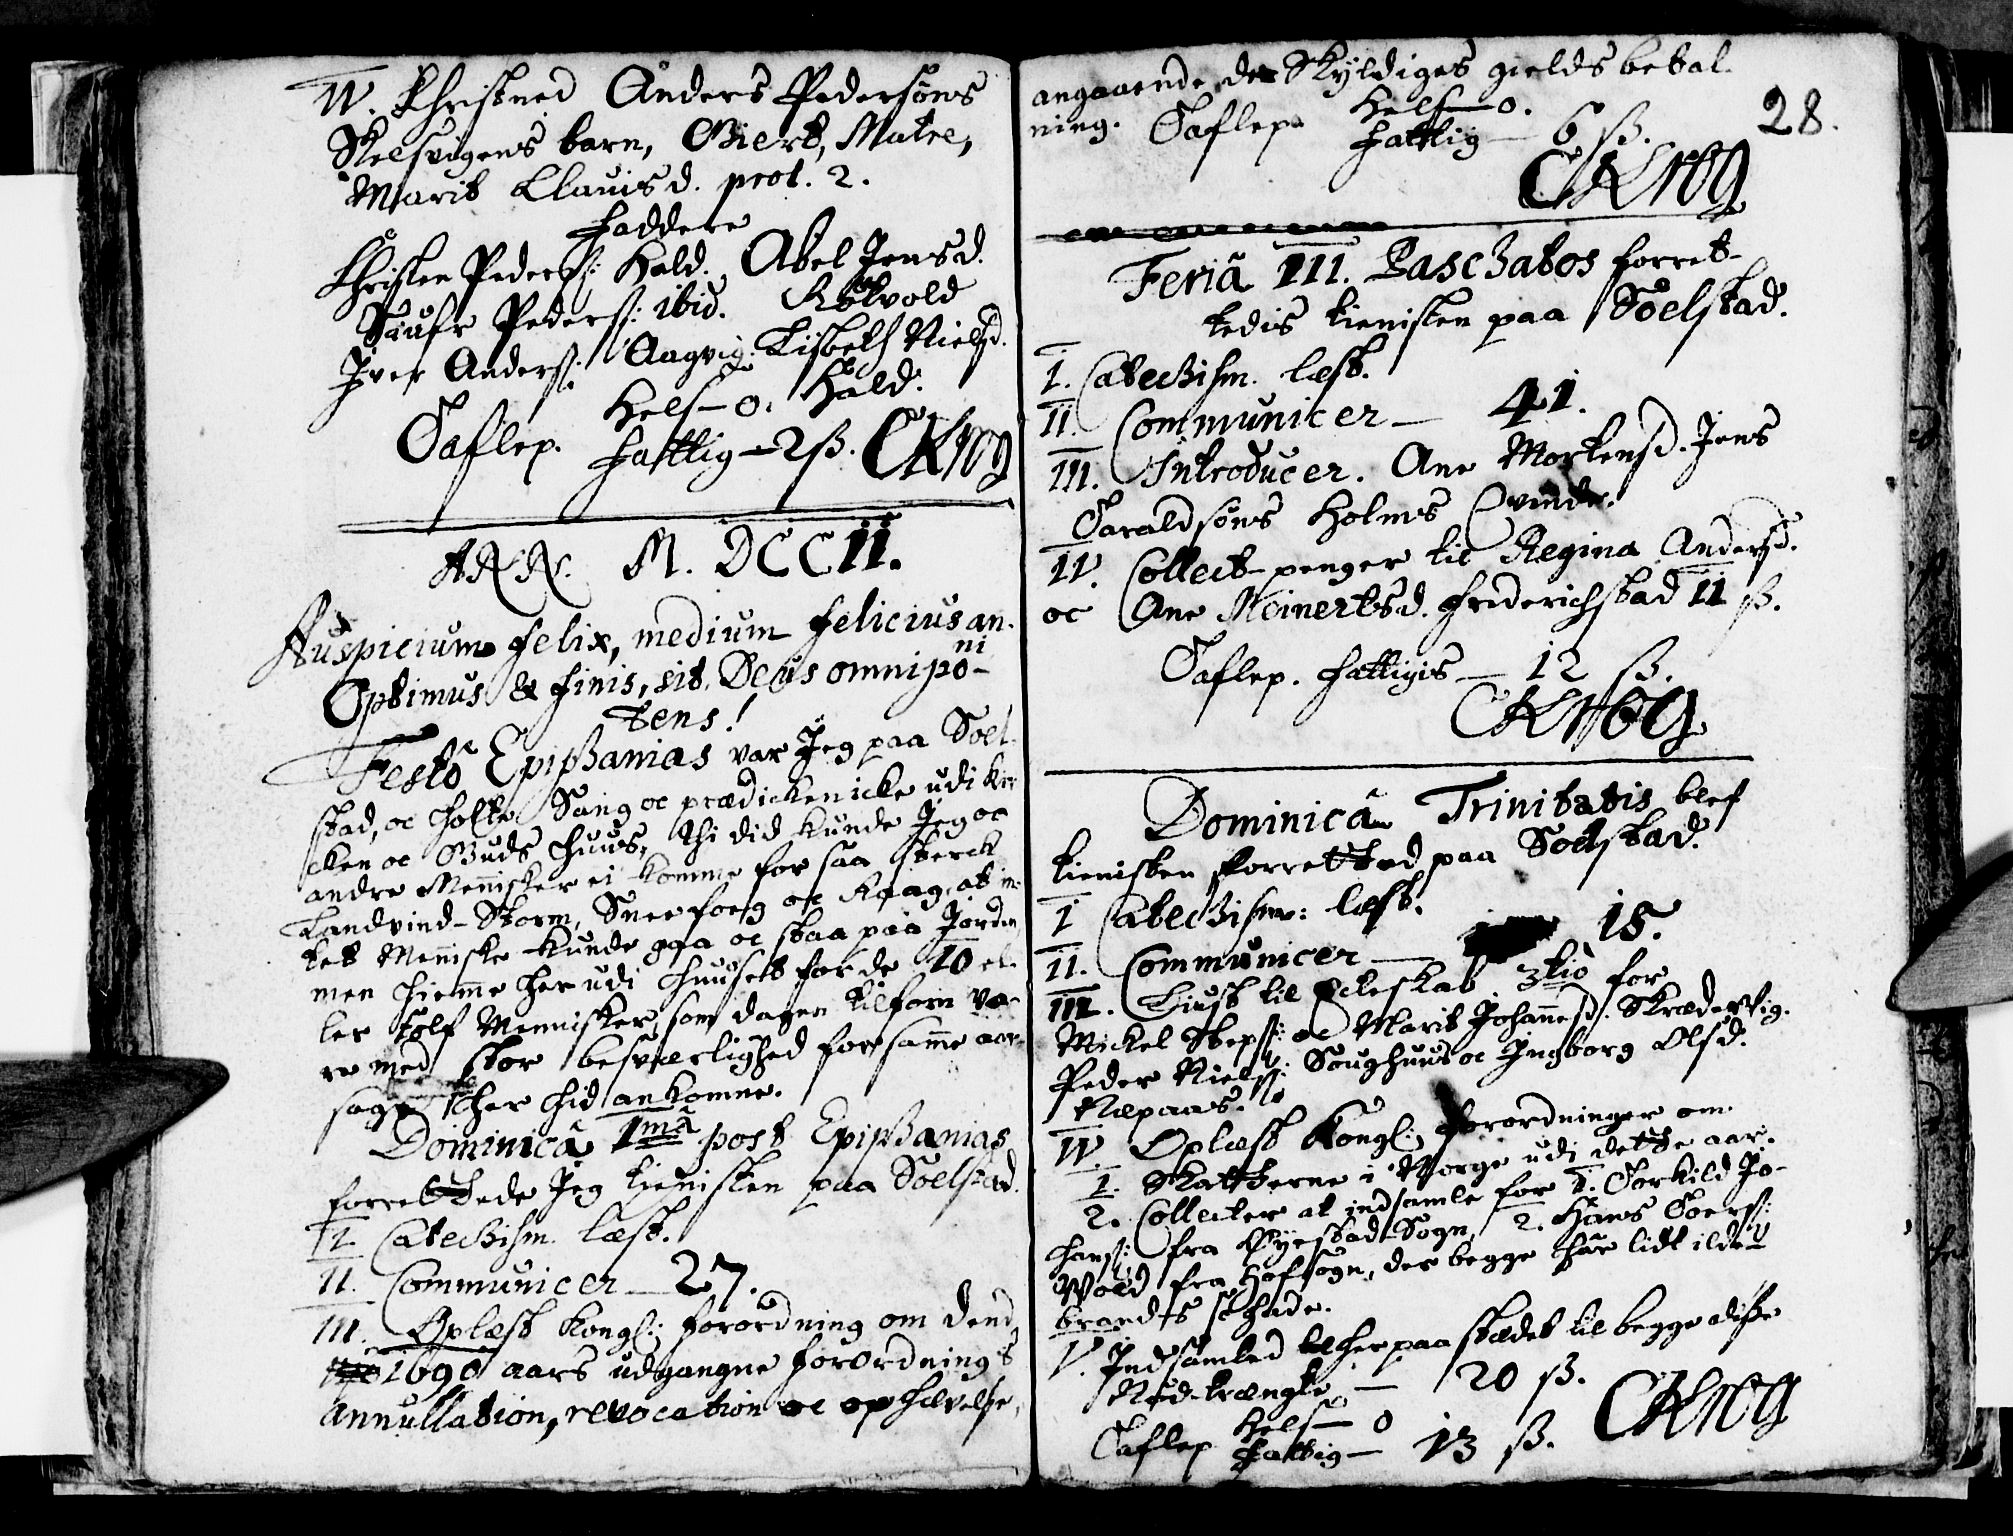 IV. Christned Anders Pedersøns
Skelsvigens barn, Giert, Matre,
Marit Clauisd. prol. 2.
Faddere
Christen Pederss: Hald. Abel Jensd.
Siufr Pederss: ibid. Røtvold
Iver Anderss: Aagvig. Lisbeth Nielsd.
Taflep. Kelf – 0. Hald.
fattig – 2 ß. CKrog
ANN. M. DCCII.
Auspicium felix, medium felicius an-
ni
Optimus & finis, sit Deus omnipo-
tens!
Festo Epiphanias var Jeg paa Soel-
stad, oc holte Sang oc prædicken icke udi Kir-
cken oc Guds Huus, thi did kunde Jeg oc
andre Mennisker ei komme for saa sterck
Landvind-Storm, Sneefoeg oc Raag, at in-
tet Menniske kunde gaa oc staa paa Jorden
men hieme her udi huuset for de 10 el-
ler tolf Mennisker, som dagen tilforn va-
re med stor besværlighed for same aar-
sage her hid ankomne.
Dominicâ 1mâ post Epiphanias
forrettede Jeg tienisten paa Soelstad.
I. Catechism. læst.
II. Communicer – 27.
III. Oplæst Kongl: forordning om dend
1690 aars udgangne forordnings
Annullation, revocation oc ophævelse,
angaaende der Skyldiges gields betal-
ning. Taflep. Kelf – 0.
fattig – 6 ß.
28.
CKrog
Feriâ III. Paschatos forret-
tedis tienisten paa Soelstad.
I. Catechism. læst.
II. Communicer – 41.
III. Introducer. Ane Mortensd. Jens
Taraldsøns Holms Qvinde.
IV. Collect-penger til Regina Andersd.
oc Ane Meinertsd. Friderichstad 11 ß.
Taflep. fattigis – 12 ß.
CKrog
Dominicâ Trinitatis blef
tienisten forretted paa Soelstad.
I Catechism: læst.
II. Communicer – 18.
III. Liust til Ecteskab 3tio for
Mickel Stepss: oc Marit Johannesd. Skrædervig.
Peder Nielss: Soughuus oc Ingborg Olsd.
Næpaas.
IV. Oplæst Kongl: forordninger om
1. Skatterne i Norge udi dette aar.
2. Collecter at indsamle for 1. Torkild Jo-
hanss: fra Øyestad Sogn, 2. Hans Toerss:
Vold fra Hofsogn, der begge har lidt ilde-
brands skade.
V. Indsamled her paa stædet til begge disse
Nød-trængte – 20 ß.
Taflep. Kelf – 0
fattig – 13 ß. CKrog